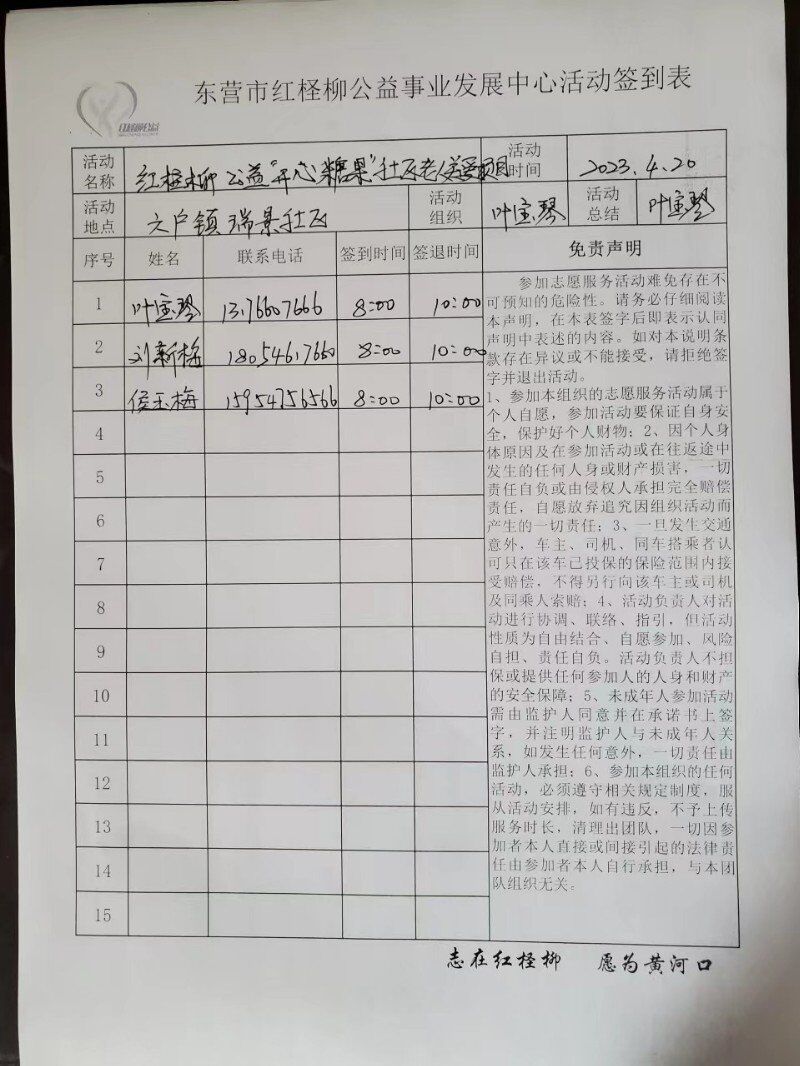 东营市红柽柳公益事业发展中心活动签到表
红柽柳公益
活动名称 红柽柳公益“开心糖果”社区老人关爱项目 活动时间 2023.4.20
活动地点 六户镇瑞景社区 活动组织 叶宝琴 活动总结 叶宝琴
序号 姓名 联系电话 签到时间 签退时间 免责声明
1 叶宝琴 13176607666 8:00 10:00
2 刘新梅 18054617660 8:00 10:00
3 侯玉梅 15954756566 8:00 10:00
4
5
6
7
8
9
10
11
12
13
14
15
参加志愿服务活动难免存在不
可预知的危险性。请务必仔细阅读
本声明，在本表签字后即表示认同
声明中表述的内容。如对本说明条
款存在异议或不能接受，请拒绝签
字并退出活动。
1、参加本组织的志愿服务活动属于
个人自愿，参加活动要保证自身安
全，保护好个人财物；2、因个人身
体原因及在参加活动或在往返途中
发生的任何人身或财产损害，一切
责任自负或由侵权人承担完全赔偿
责任，自愿放弃追究因组织活动而
产生的一切责任；3、一旦发生交通
意外，车主、司机、同车搭乘者认
可只在该车已投保的保险范围内接
受赔偿，不得另行向该车主或司机
及同乘人索赔；4、活动负责人对活
动进行协调、联络、指引，但活动
性质为自由结合、自愿参加、风险
自担、责任自负。活动负责人不担
保或提供任何参加人的人身和财产
的安全保障；5、未成年人参加活动
需由监护人同意并在承诺书上签
字，并注明监护人与未成年人关
系，如发生任何意外，一切责任由
监护人承担；6、参加本组织的任何
活动，必须遵守相关规定制度，服
从活动安排，如有违反，不予上传
服务时长，清理出团队，一切因参
加者本人直接或间接引起的法律责
任由参加者本人自行承担，与本团
队组织无关。
志在红柽柳 愿为黄河口